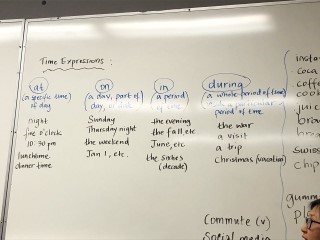 Time Expressions :
at
(a specific time)
of day
night
five o'clock
10:30 pm
lunchtime
dinner time
on
(a day, part of)
day,
Sunday
Thursday night
the weekend
Jan 1, etc.
in
(a period)
of time
the evening
the fall, etc
June, etc
the sixties
(decade)
during
(a whole period of time)
period of time
the war
a visit
a trip
christmas (vacation)
Commute (v)
Social media
insta
coca
coffe
cook
juic
brow
swiss
chip
gumm